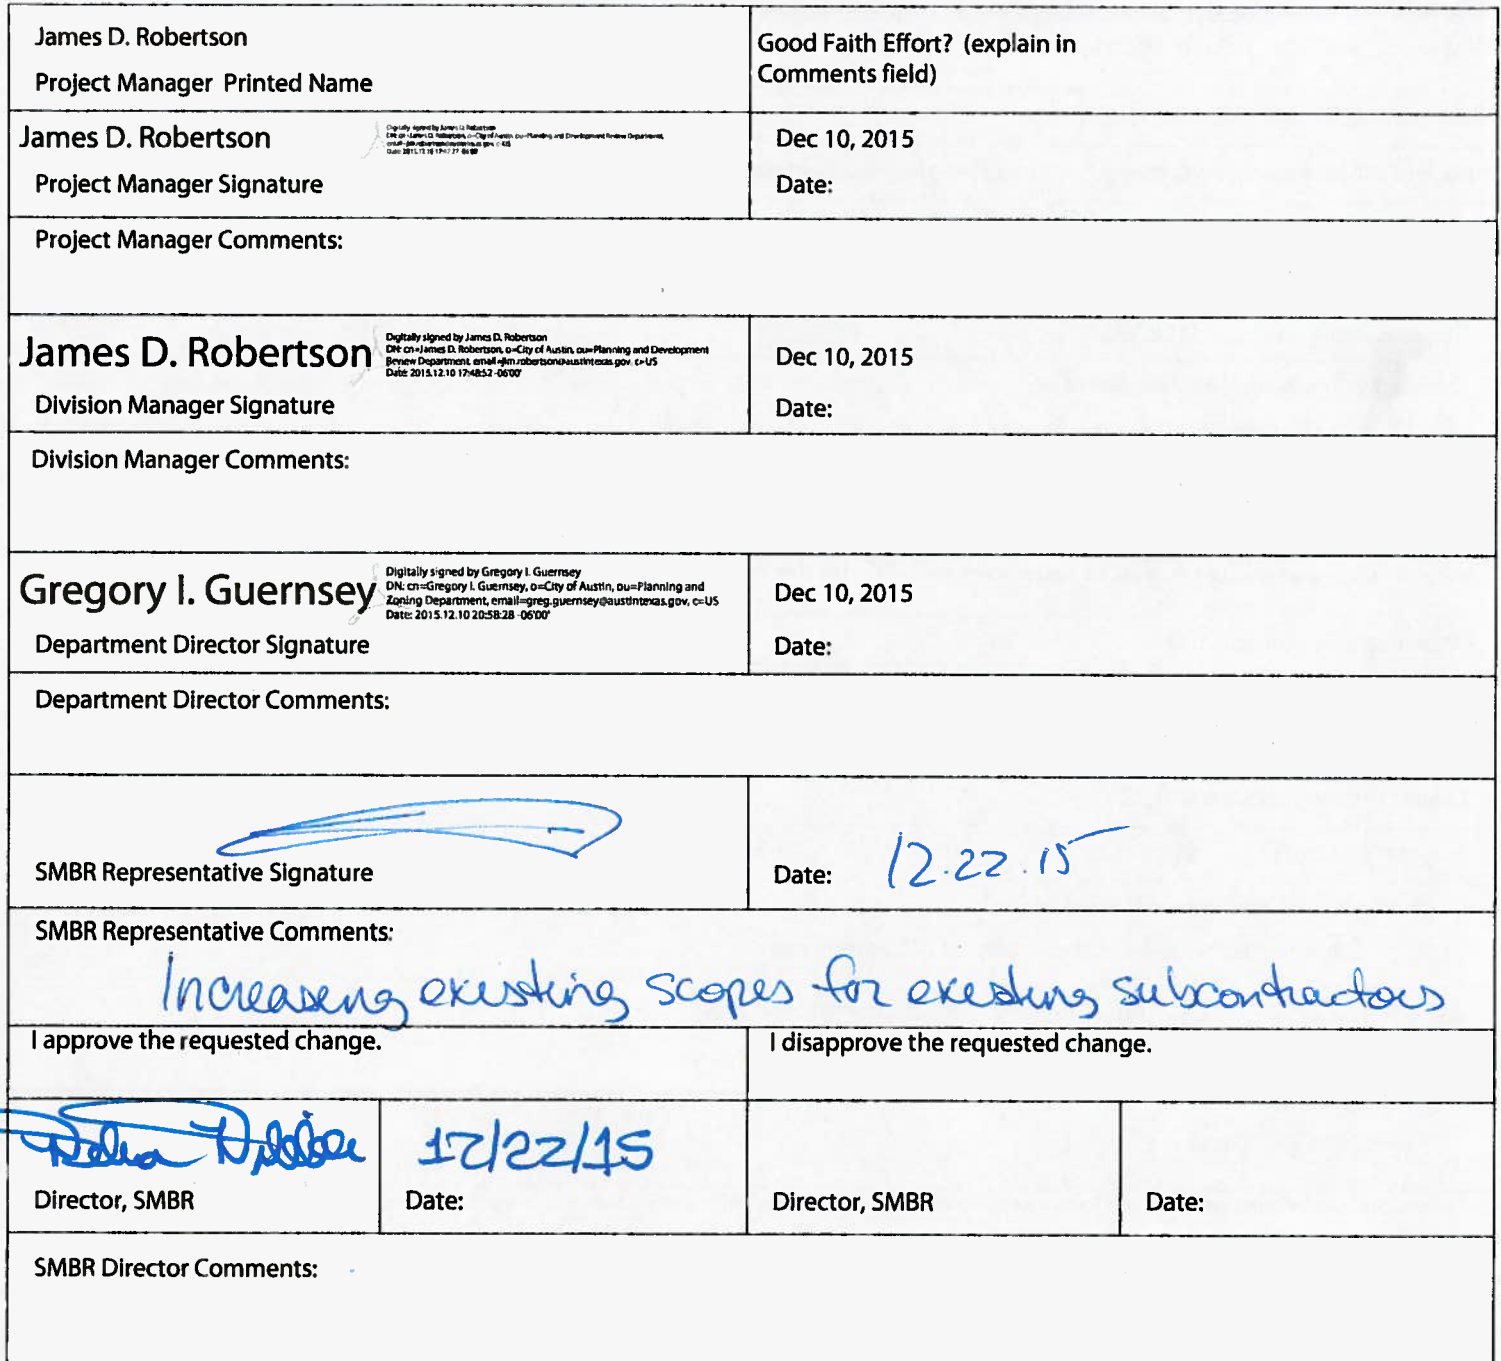 James D. Robertson
Project Manager Printed Name
Good Faith Effort? (explain in
Comments field)
James D. Robertson
Digitally signed by James D. Robertson
DN: cn=James D. Robertson, o=City of Austin, ou=Planning and Development Review Department,
Project Manager Signature
Dec 10, 2015
Date:
Project Manager Comments:
James D. Robertson
Digitally signed by James D. Robertson
DN: cn=James D. Robertson, o=City of Austin, ou=Planning and Development
Review Department, email=jim.robertson@austintexas.gov, c=US
Date: 2015.12.10 17:48:52 -06'00'
Division Manager Signature
Dec 10, 2015
Date:
Division Manager Comments:
Gregory I. Guernsey
Digitally signed by Gregory I. Guernsey
DN: cn=Gregory I. Guernsey, o=City of Austin, ou=Planning and
Zoning Department, email=greg.guernsey@austintexas.gov, c=US
Date: 2015.12.10 20:58:28 -06'00'
Department Director Signature
Dec 10, 2015
Date:
Department Director Comments:
SMBR Representative Signature
Date: 12.22.15
SMBR Representative Comments:
Increasing existing scopes for existing subcontractors
I approve the requested change.
I disapprove the requested change.
12/22/15
Director, SMBR
Date:
Director, SMBR
Date:
SMBR Director Comments: